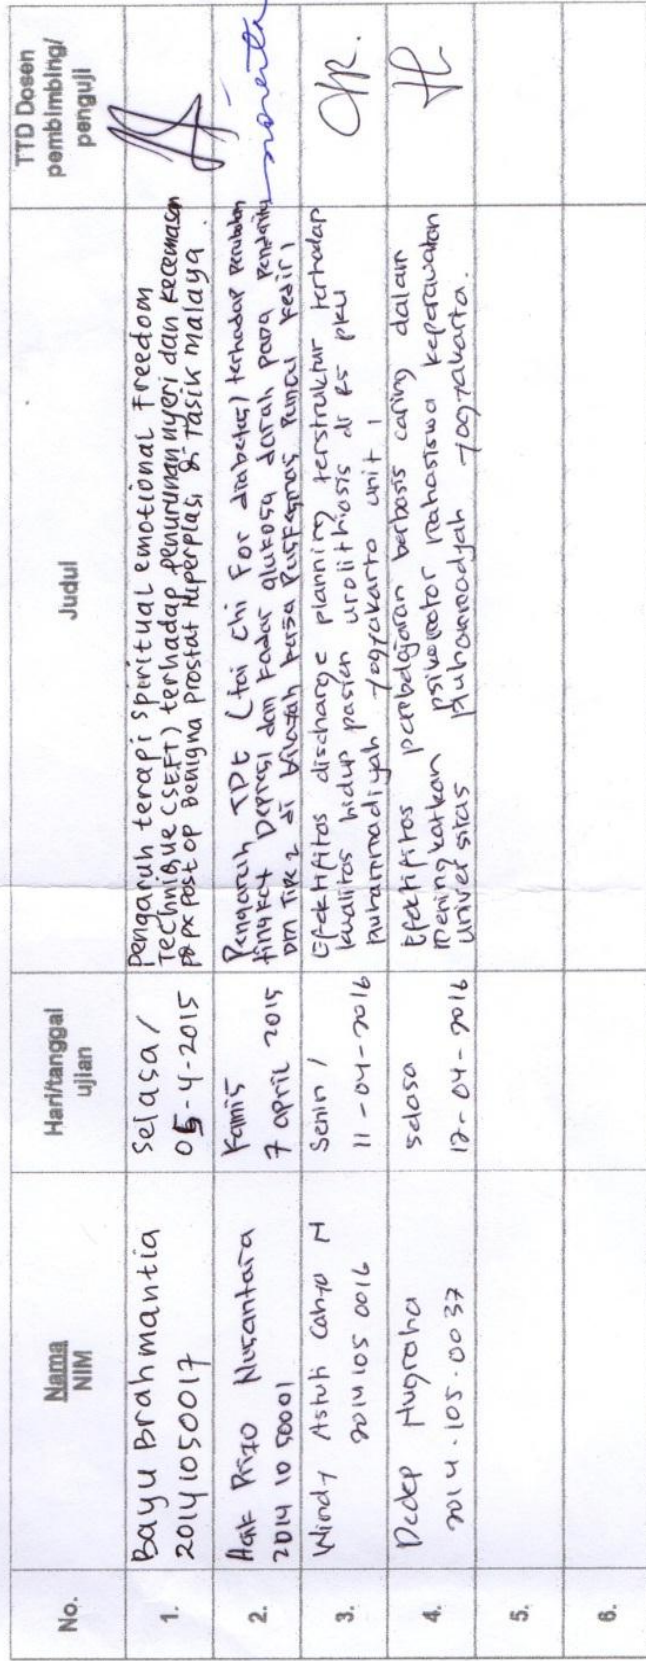 No.
Nama
NIM
Hari/tanggal
ujian
Judul
TTD Dosen
pembimbing/
penguji
1.
Bayu Brahmantia
20141050017
Selasa/
05-4-2015
Pengaruh terapi spiritual emotional Freedom
Technique (SEFT) terhadap penurunan nyeri dan kecemasan
pa px post op Benigna Prostat Hiperplasi di Tasik malaya.
2.
Nusantara
2014 10 50001
Kamis
7 april 2015
Pengaruh TDt (tai chi For diabetes) terhadap
tingkat Depresi dan kadar glukosa darah para
DM Tipe 2 di kerja Puskesmas kediri
3.
Windy Astuti Cahyo N
2014 105 0016
Senin /
11-04-2016
Efektifitas discharge planning terstruktur terhadap
kualitas hidup pasien urolithiosis di RS pku
muhammadiyah yogyakarta unit 1
4.
Dedep Nugraha
2014.105.0037
selasa
12-04-2016
Efektifitas pembelajaran berbasis caring dalam
meningkatkan psikomotor mahasiswa keperawatan
universitas Muhammadiyah Yogyakarta.
5.
6.